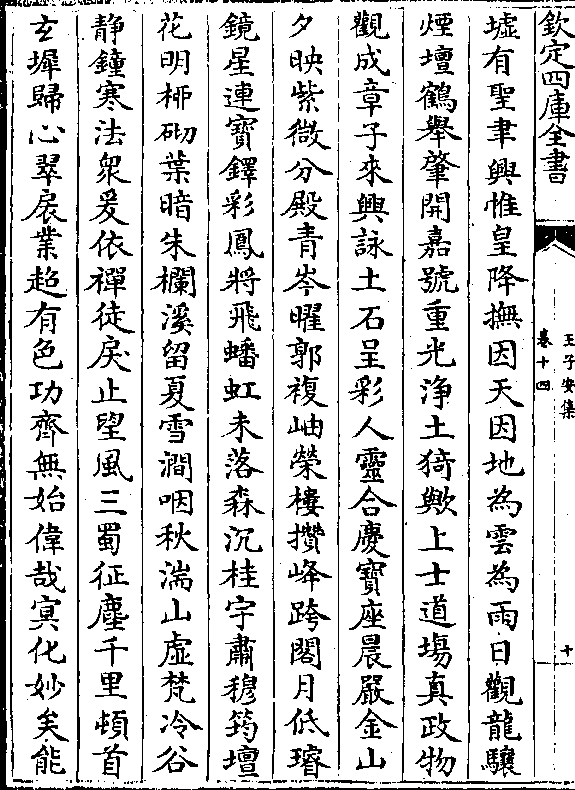 欽定四庫全書
王子安集
卷十四
十
墟有聖聿興惟皇降撫因天因地為雲為雨日觀龍驤
煙壇鶴舉肇開嘉號重光淨土猗歟上士道場真政物
觀成章子來興詠土石呈彩人靈合慶寳座晨嚴金山
夕映紫微分殿青岑曜郭複岫榮樓攢峰跨閣月低璿
鏡星連寳鐸彩鳳將飛蟠虹未落森沉桂宇肅穆筠壇
花明栁砌葉暗朱欄溪留夏雪澗咽秋湍山虛梵冷谷
静鐘寒法衆爰依禪徒戾止望風三蜀征塵千里頓首
玄墀歸心翠扆業超有色功齊無始偉哉冥化妙矣能